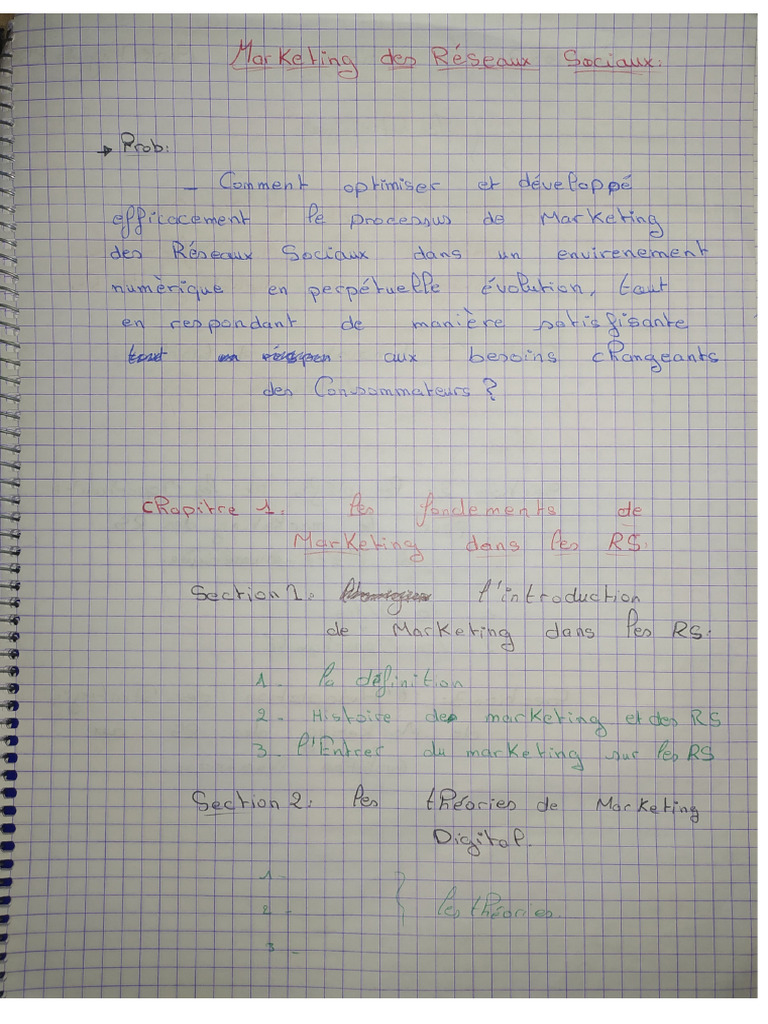 Marketing des Réseaux Sociaux:
→ Prob:
_ Comment optimiser et développé
efficacement le processus de Marketing
des Réseaux Sociaux dans un envirenement
numèrique en perpétuelle évolution, tout
en respondant de manière satisfisante
aux besoins changeants
des Consommateurs ?
Chapitre 1: les fondements de
Marketing dans les RS:
Section 1: l'introduction
de Marketing dans les RS:
1 - la définition
2 - Histoire des marketing et des RS
3 - l'Entrer du marketing sur les RS
Section 2: les théories de Marketing
Digital.
1 -
2 - les théories.
3 -